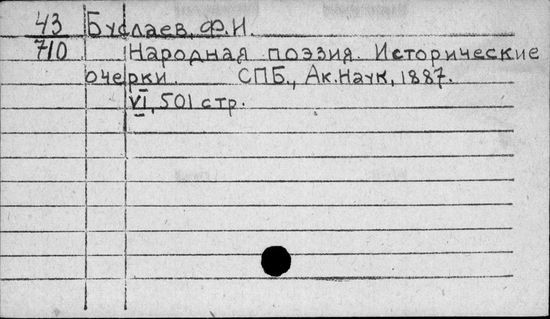 43 Буслаев, Ф.И.
710 Народная поэзия. Исторические
очерки. СПБ., Ак.Наук, 1887.
VI, 501 стр.